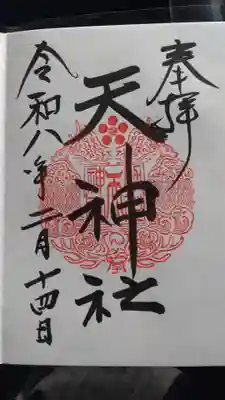 奉拝
天神社
令和八年二月十四日